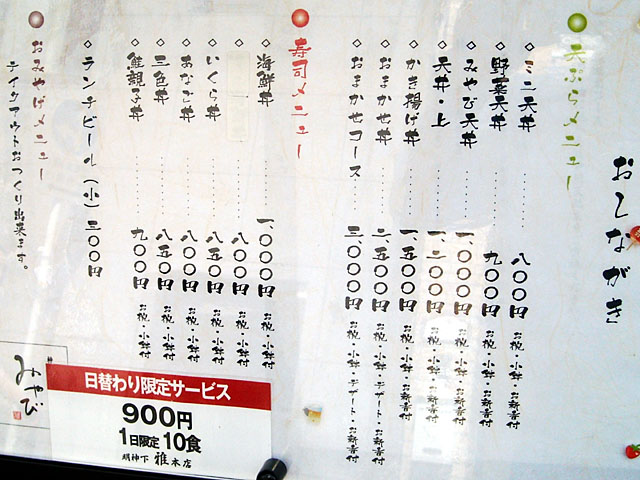 おしながき
天ぷらメニュー
◇ミニ天丼……八〇〇円 お椀・小鉢・お新香付
◇野菜天丼……九〇〇円 お椀・小鉢・お新香付
◇みやび天丼……一、〇〇〇円 お椀・小鉢・お新香付
◇天丼・上……一、二〇〇円 お椀・小鉢・お新香付
◇かき揚げ丼……一、五〇〇円 お椀・小鉢・お新香付
◇おまかせ丼……二、〇〇〇円 お椀・小鉢・デザート・お新香付
◇おまかせコース……三、〇〇〇円 お椀・小鉢・デザート・お新香付
寿司メニュー
◇海鮮丼……一、〇〇〇円 お椀・小鉢付
◇……八〇〇円 お椀・小鉢付
◇いくら丼……八五〇円 お椀・小鉢付
◇あなご丼……八〇〇円 お椀・小鉢付
◇三色丼……八五〇円 お椀・小鉢付
◇鮭親子丼……九〇〇円 お椀・小鉢付
◇ランチビール(小)三〇〇円
おみやげメニュー
テイクアウトおつくり出来ます。
みやび
日替わり限定サービス
900円
1日限定10食
明神下 雅 本店